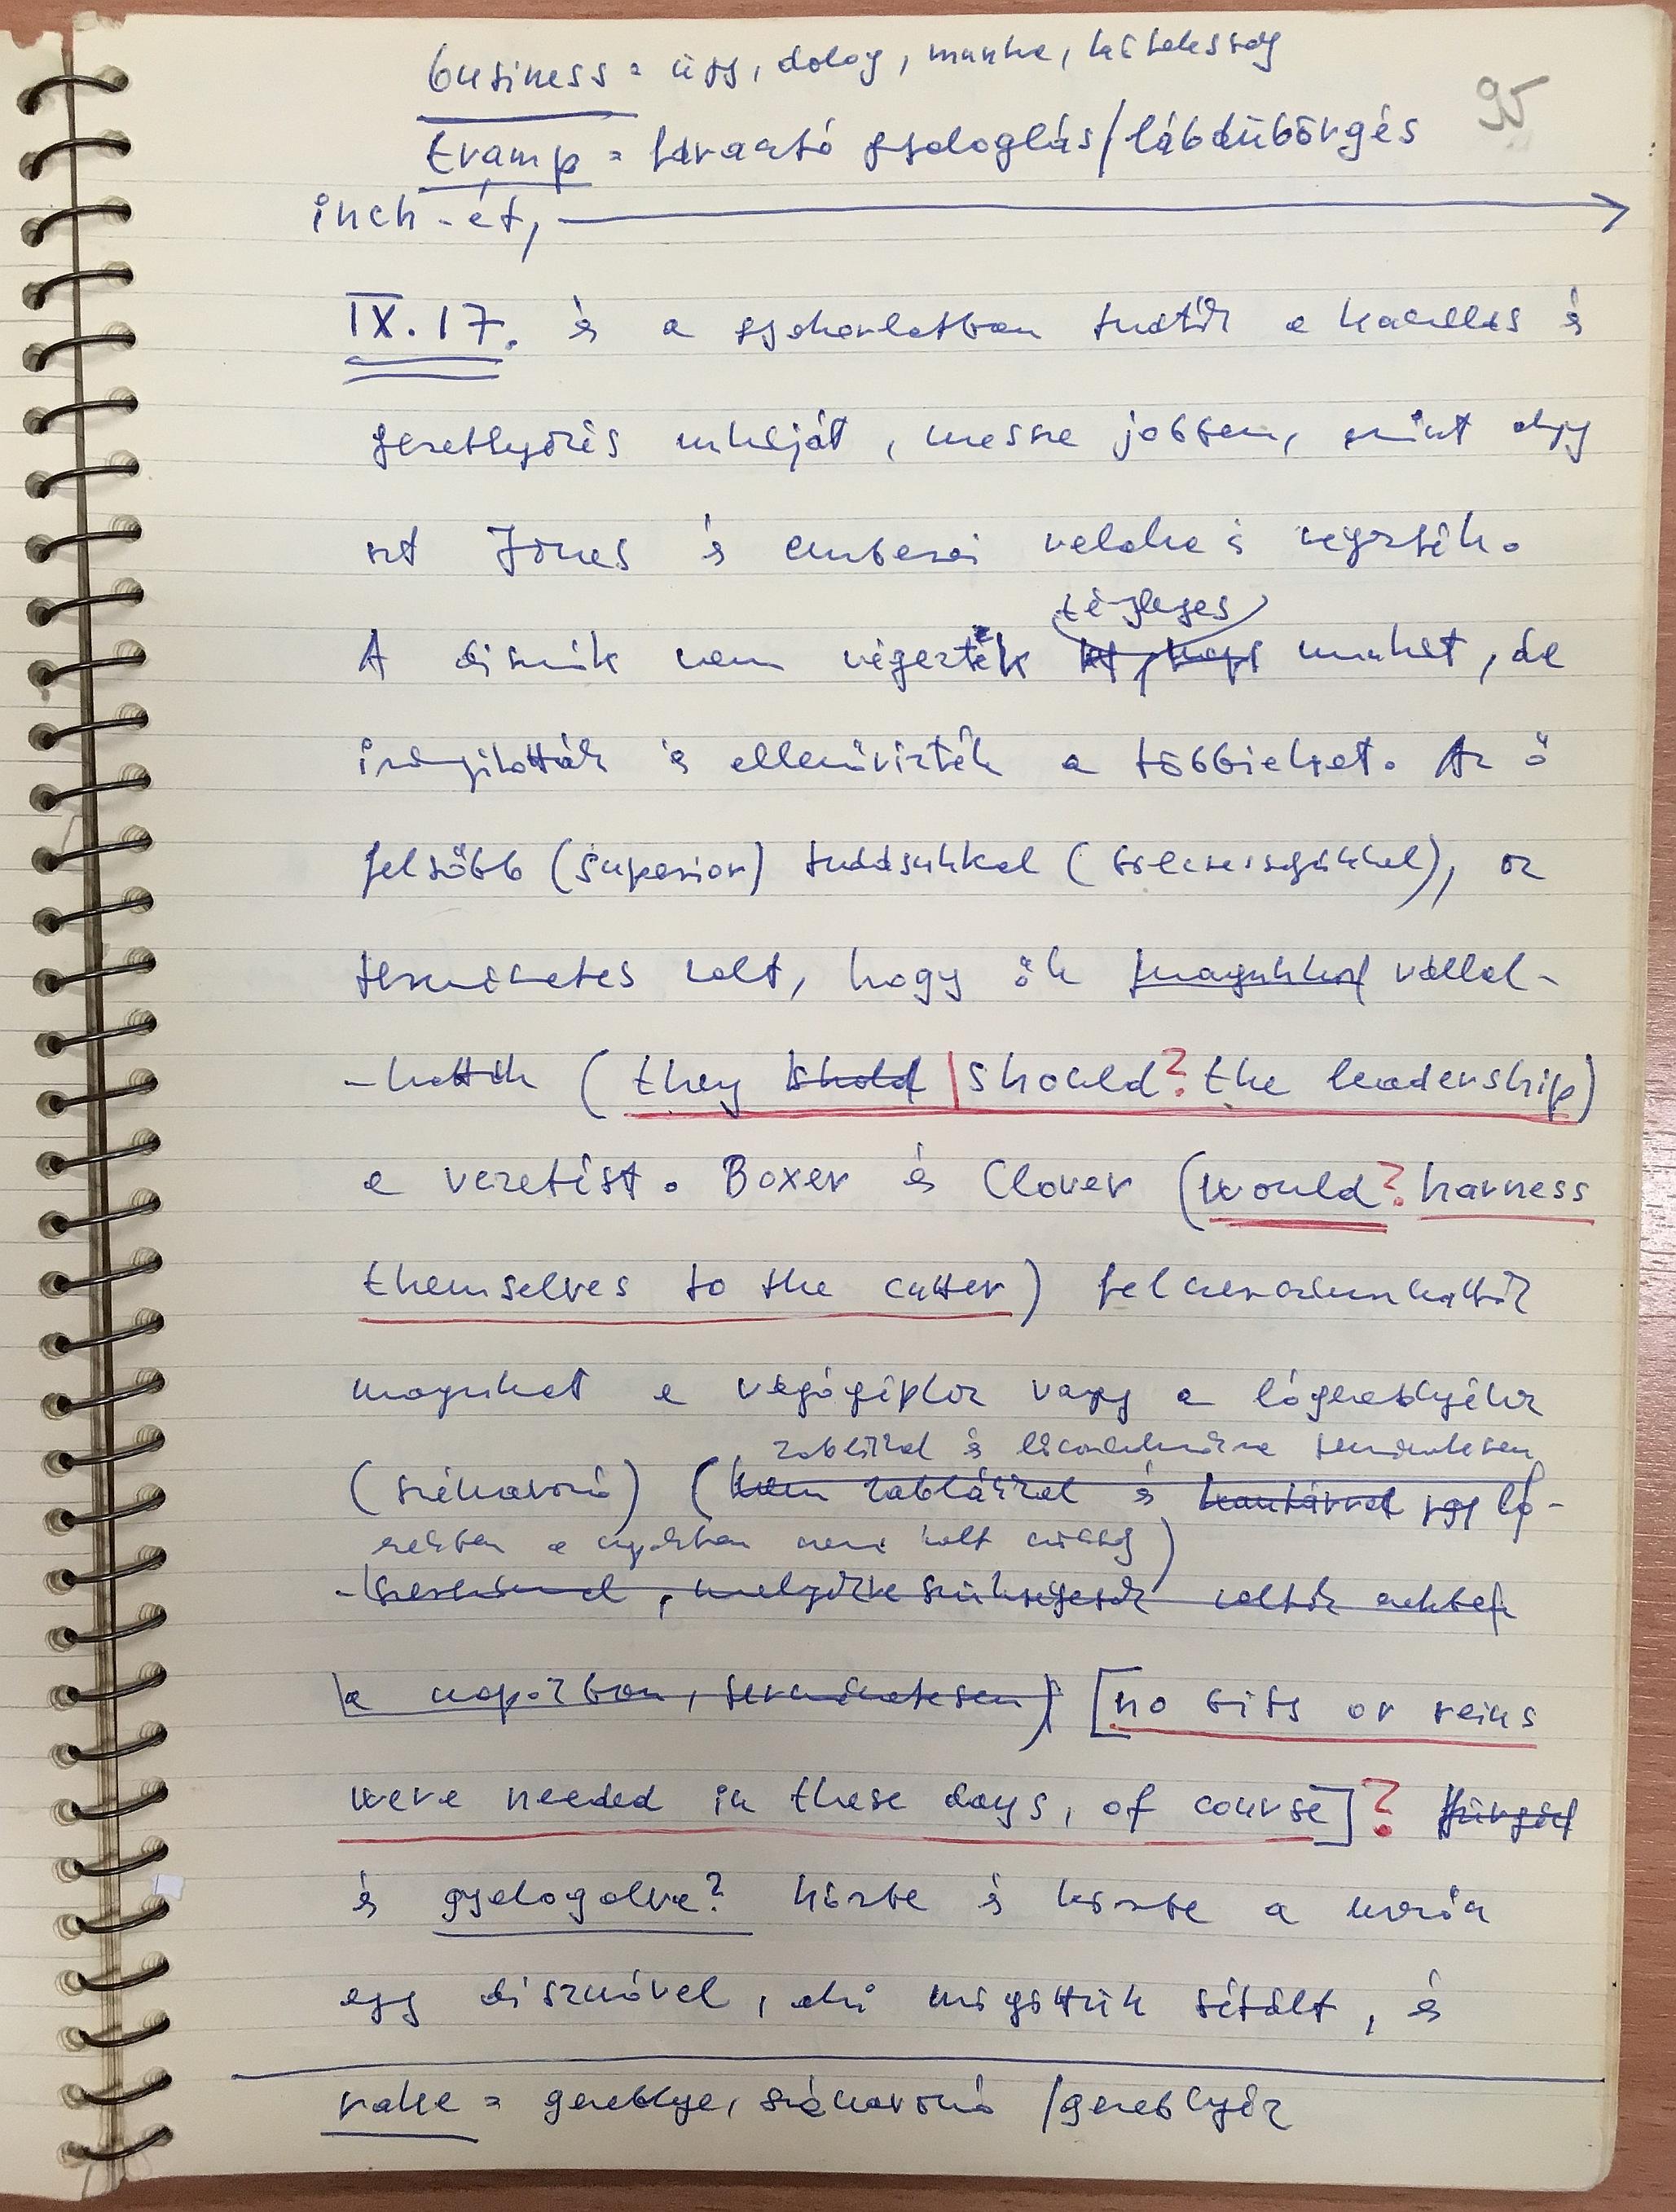 95
business = ügy, dolog, munka, kötelesség
tramp = fárasztó gyaloglás/lábdübörgés
inch-ét,
IX. 17. és a gyakorlatban tudták a kaszálás és
gereblyézés munkáját, messze jobban, mint ahogy
azt Jones és emberei valaha is végezték.
tényleges
A disznók nem végezték munkát, de
irányították és ellenőrizték a többieket. Az ő
felsőbb (superior) tudásukkal (bölcsességükkel), az
természetes volt, hogy ők magukkal vállal-
-hatták (they shold should? the leadership)
a vezetést. Boxer és Clover (would? harness
themselves to the cutter) felszerszámozhatták
magukat a vágógéphez vagy a lógereblyéhez
zablákra és lószerszámra természetesen
(szénavonó) (sem zablákkal és kantárral vagy ló-
ezekben a napokban nem volt szükség)
-szerszámmal, melyekre szükségesek voltak ezekben
a napokban, természetesen) [no bits or reins
were needed in these days, of course]?
és gyalogolva? körbe és körbe a
egy disznóval, aki mögöttük sétált, és
rake = gereblye, szénavonó /gereblyéz